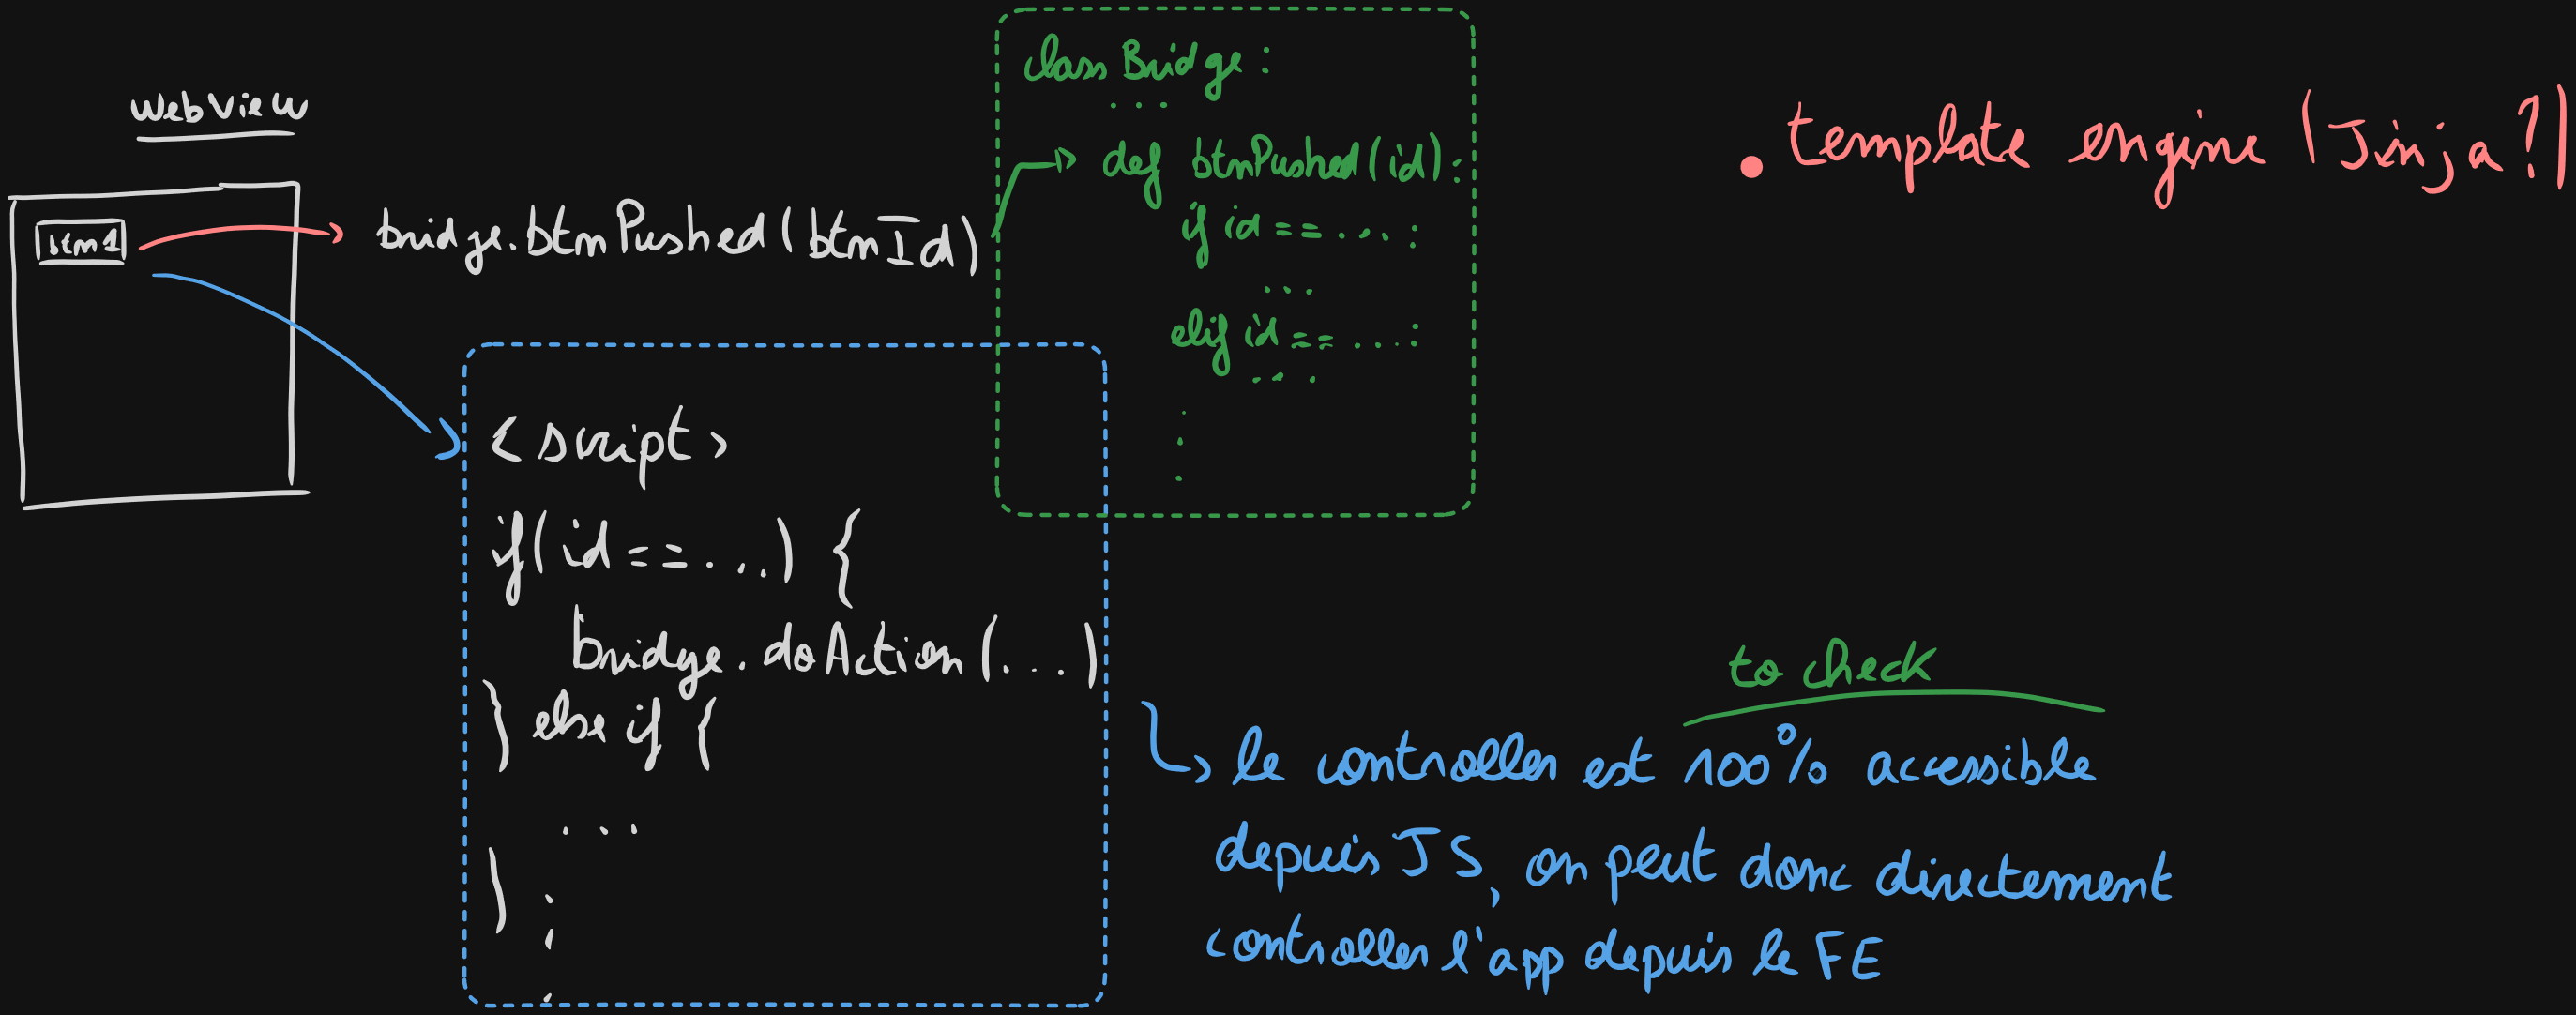 webView
btn1
bridge.btnPushed(btnId)
class Bridge:
...
def btnPushed(id):
if id == ....:
...
elif id == ....:
....
.
.
.
<script>
if(id == ...) {
bridge.doAction(...)
} else if {
...
}
.
.
.
• template engine (Jinja?)
to check
le controller est 100% accessible
depuis JS, on peut donc directement
controller l'app depuis le FE